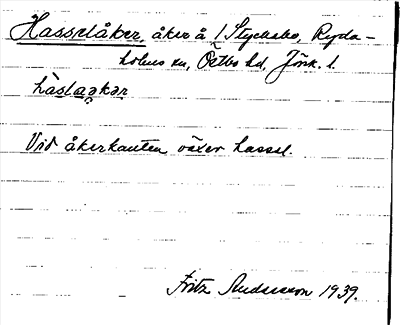 Hasselåker, åker å 1 Styckebo, Ryda-
holms sn, Östbo hd, Jönk. l.
hàslaakər
Vid åkerkanten växer hassel.
Fritz Andersson 1939.